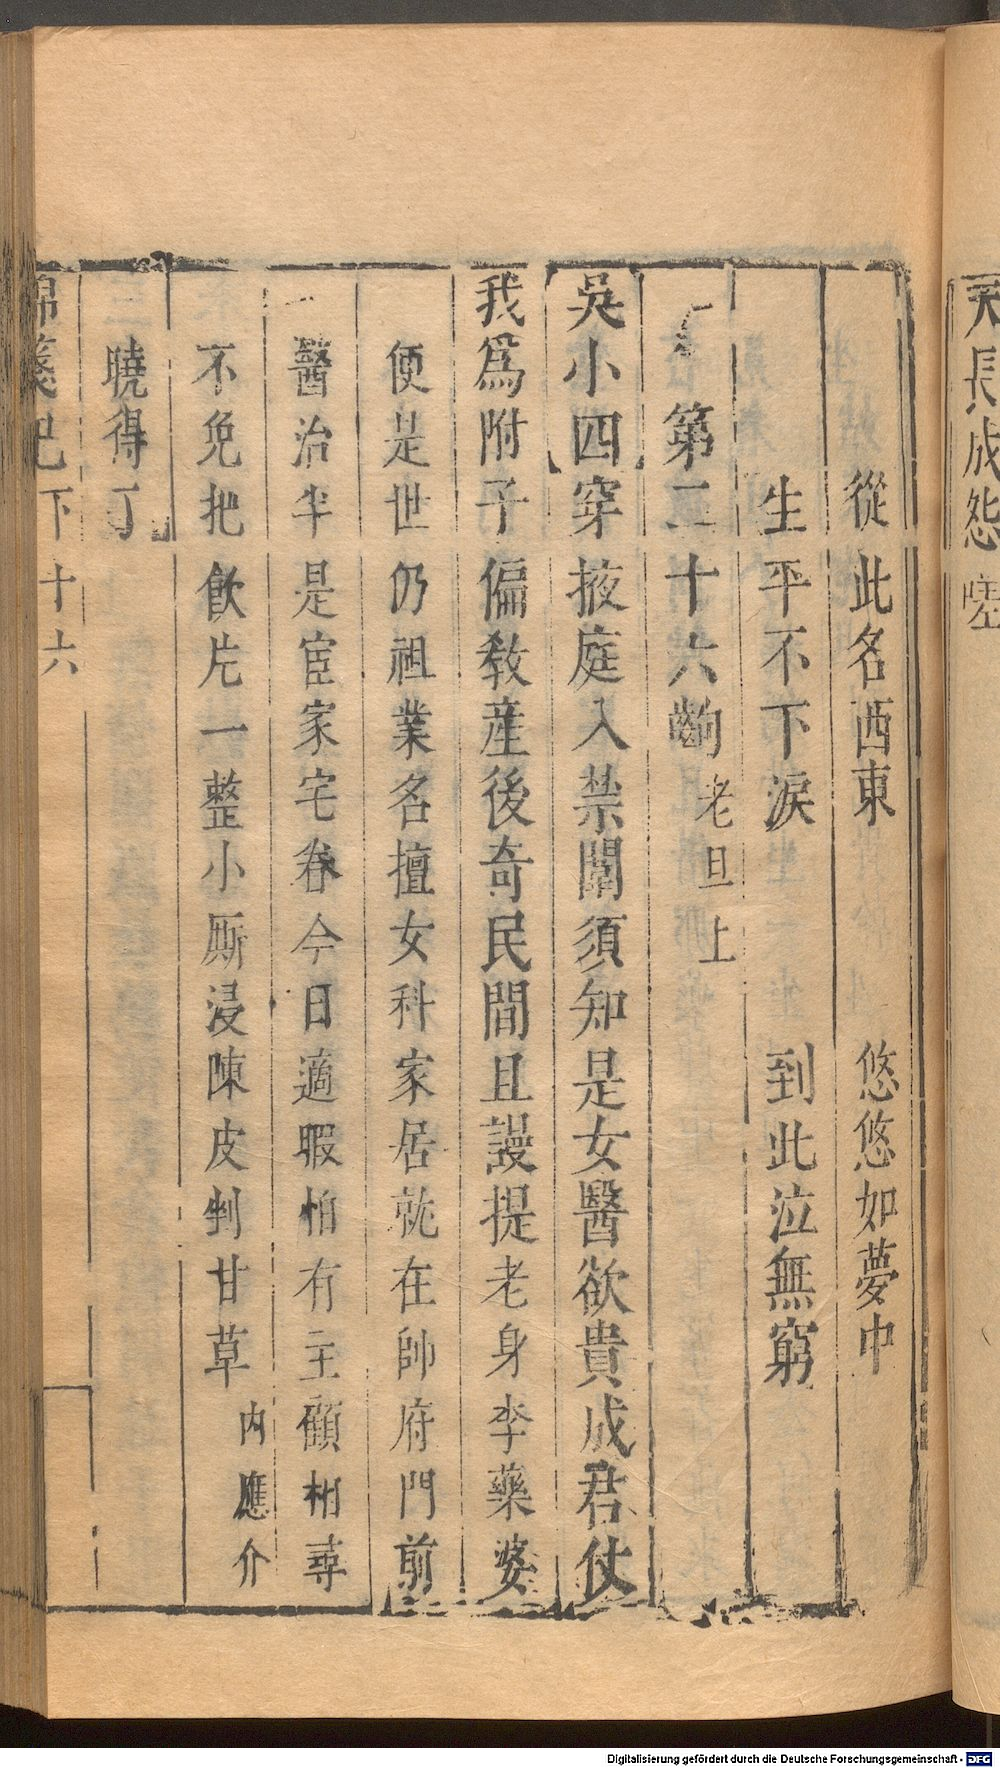 天長成怨嗟
從此名西東　悠悠如夢中
生平不下淚　到此泣無窮
第二十六齣　老旦上
吳小四穿掖庭入禁闈須知是女醫欲貴成君仗
我爲附子偏教產後奇民間且謾提老身李藥婆
便是世仍祖業名擅女科家居就在帥府門前
醫治半是宦家宅眷今日適暇怕有主顧相尋
不免把飲片一整小厮浸陳皮剉甘草　內應介
曉得丁
錦箋記　下　十六
Digitalisierung gefördert durch die Deutsche Forschungsgemeinschaft - DFG